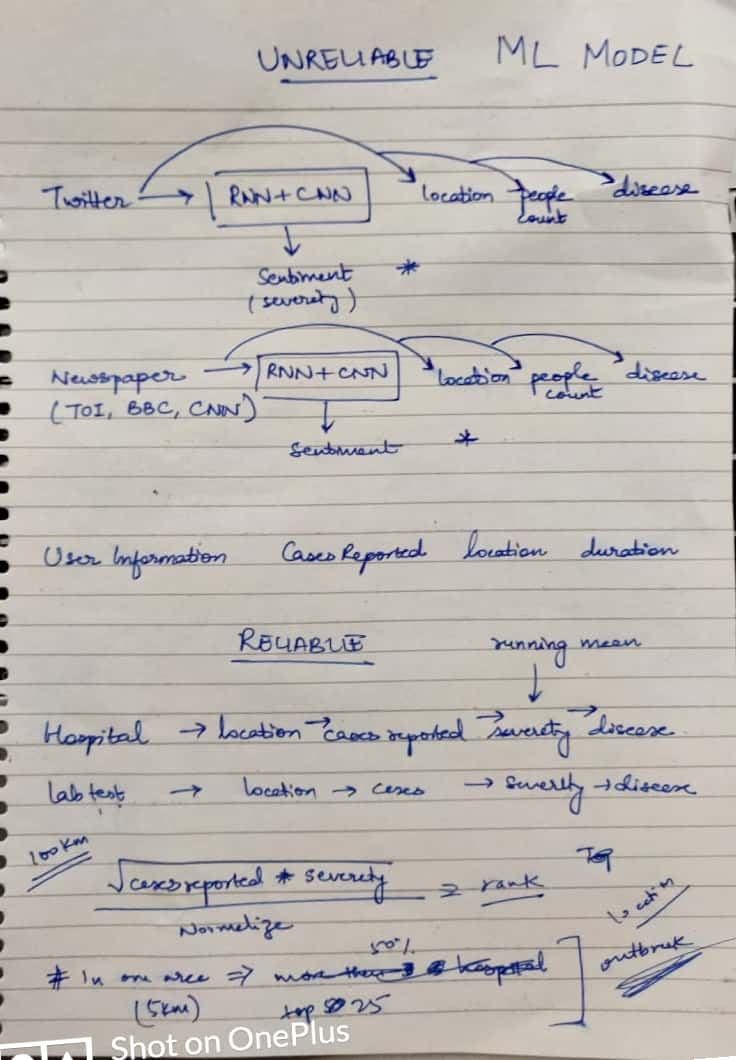 UNRELIABLE ML MODEL
Twitter → RNN + CNN location people count disease
↓
Sentiment *
(severety)
Newspaper → RNN + CNN location people count disease
(TOI, BBC, CNN) ↓
Sentiment *
User Information Cases Reported location duration
RELIABLE running mean
↓
Hospital → location → cases reported → severety → disease
Lab test → location → cases → severity → disease
100 km
√cases reported * severety = rank
Normelize
location
50%
# In one area ⇒ outbreak
(5km) top 25
Shot on OnePlus